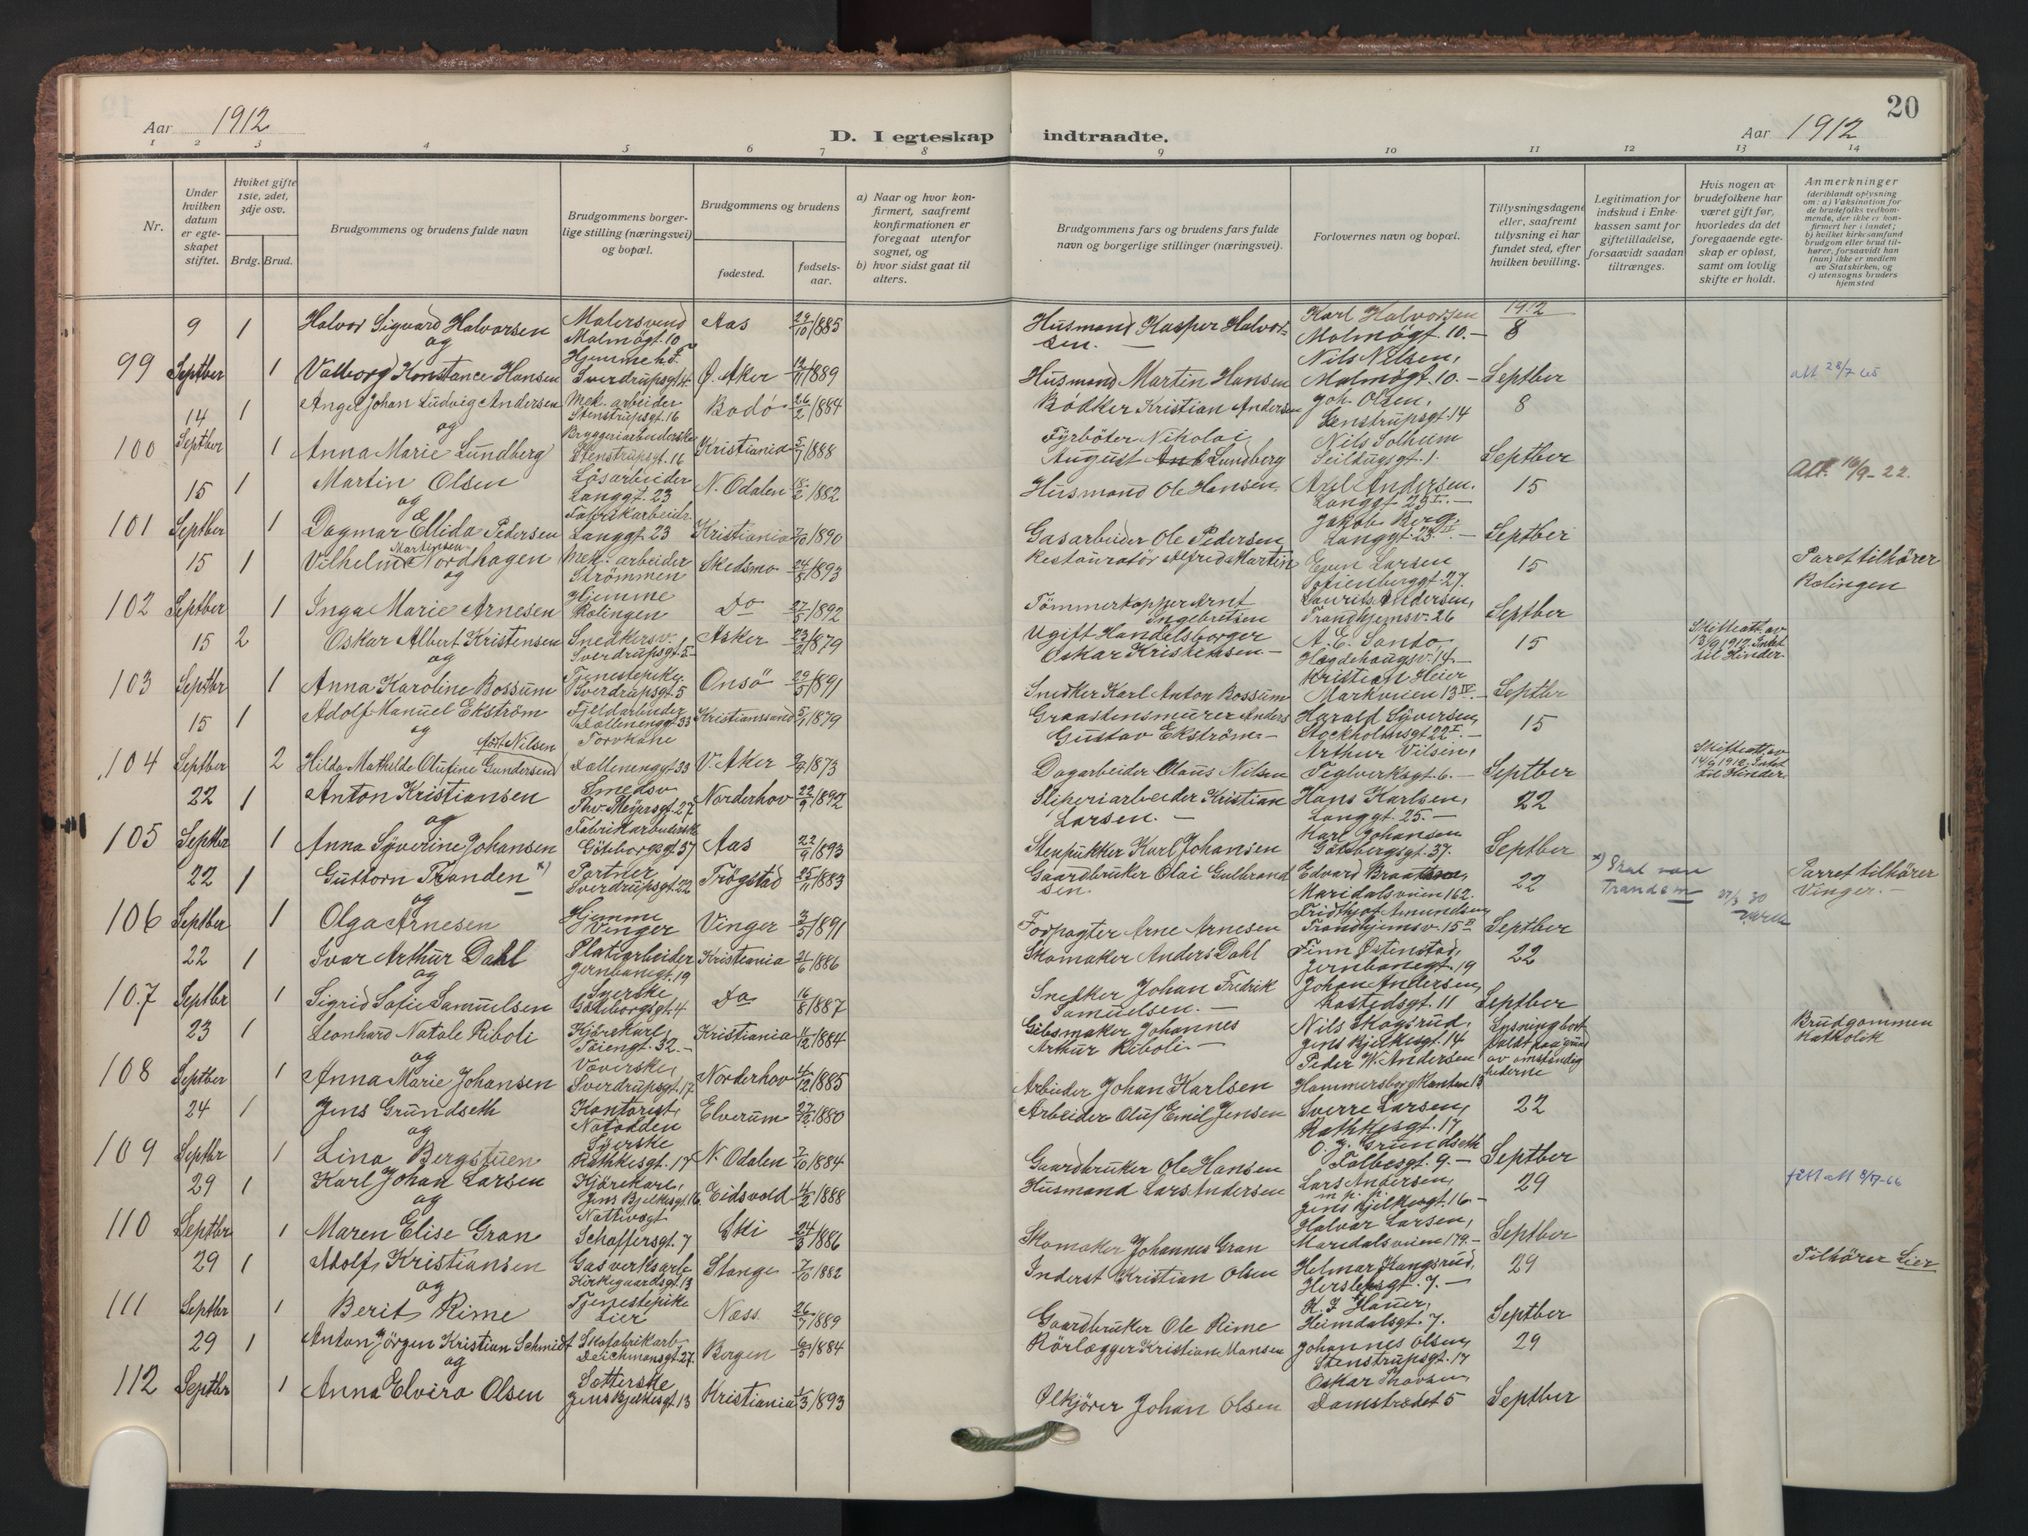 Aar 1912
D. I egteskap indtraadte.
Aar 1912
20
1 2 3 4 5 6 7 8 9 10 11 12 13 14
Nr.
Under hvilken datum er egteskapet stiftet.
Hvilket gifte 1ste, 2det, 3dje osv.
Brdg. Brud.
Brudgommens og brudens fulde navn
Brudgommens borgerlige stilling (næringsvei) og bopæl.
Brudgommens og brudens
fødested.
fødselsaar.
a) Naar og hvor konfirmert, saafremt konfirmationen er foregaat utenfor sognet, og
b) hvor sidst gaat til alters.
Brudgommens fars og brudens fars fulde navn og borgerlige stillinger (næringsvei).
Forlovernes navn og bopæl.
Tillysningsdagene eller, saafremt tillysning ei har fundet sted, efter hvilken bevilling.
Legitimation for indskud i Enkekassen samt for giftetilladelse, forsaavidt saadan tiltrænges.
Hvis nogen av brudefolkene har været gift før, hvorledes da det foregaaende egteskap er opløst, samt om lovlig skifte er holdt.
Anmerkninger
(deriblandt oplysning om: a) Vaksination for de brudefolks vedkommende, der ikke er konfirmert her i landet; b) hvilket kirkesamfund brudgom eller brud tilhører, forsaavidt han (hun) ikke er medlem av Statskirken, og c) utensogns bruders hjemsted
9 1 Halvor Sigvard Halvorsen Malersvend Malmøgt. 10 Aas 29/10 1885 Husmand Kasper Halvorsen. Karl Halvorsen Malmøgt 10. 1912 8
og
99 Septber 1 Valborg Konstance Hansen Hjemme h. F. Sverdrupsgt 4 Ø. Aker 1889 Husmand Martin Hansen Nils Nilsen, Malmøgt 10. Septber att 28/7 65
14 1 Angel Johan Ludvig Andersen Mek. arbeider Stenstrupsgt. 16 Bodö 26/2 1884 Bödker Kristian Andersen Joh. Olsen, Stenstrupsgt. 14 8
og
100 Septber 1 Anna Marie Lundberg Bryggeriarbeiderske Stenstrupsgt. 16 Kristiania 5/7 1888 Fyrböter Nikolai August Lundberg Nils Solhum Seildugsgt. 1. Septber Att. 16/9-22.
15 1 Martin Olsen Løsarbeider Langgt. 23 N. Odalen 18/2 1882 Husmand Ole Hansen Axel Andersen. Langgt. 23 I. 15
og
101 Septber 1 Dagmar Ellida Pedersen Langgt. 23 Kristiania 7/10 1890 Gasarbeider Ole Pedersen Jakob Berg: Langgt. 23 II Septber
15 1 Vilhelm Martinsen Nordhagen Mek. arbeider Strömmen Skedsmo 24/8 1893 Restauratör Alfred Martin Even Larsen Sofienberggt 27. 15 Paret tilhører Rælingen
og
102 Septber 1 Inga Marie Arnesen Hjemme Rælingen Do 27/5 1892 Tömmerkopper Arnt Ingebretsen Laurits Andersen, Trondhjemsv. 26 Septber
15 2 Oskar Albert Kristensen Snedkersv. Sverdrupsgt. 5 Asker 1879 Ugift Handelsborger Oskar Kristensen A. E. Sando, Hægdehaugsv. 14. 15 Skifteatt. av 13/9 1912 Intet til Hinder.
og
103 Septbr 1 Anna Karoline Bossum Tjenestepike Sverdrupsgt 5 Onsö 1891 Snedker Karl Anton Bossum Kristian Heier Markveien 13 IV. Septber
15 1 Adolf Manuel Ekström Fjeldarbeider Dællenenggt 33 Kristianssand 5/1 1879 Graastensmurer Anders Gustav Ekström Harald Syversen, Stockholmsgt 22 I. 15
og
104 Septber 2 Hilda Mathilde Olufine Gundersen född Nilsen Torvkone Dællenenggt 33 V. Aker 1873 Dagarbeider Olaus Nilsen Arthur Vilsen, Teglverksgt. 6. Septber Skifteatt. av 14/9 1912. Intet til Hinder
22 1 Anton Kristiansen Smedsv. Thv. Meyersgt. 27 Norderhov 22/9 1892 Sliperiarbeider Kristian Larsen. Hans Karlsen, Langgt. 25. 22
og
105 Septber 1 Anna Syverine Johansen Fabrikarbeiderske Göteborggt 37 Aas 22/9 1893 Stenpukker Karl Johansen Karl Johansen Göteborgsgt. 37. Septber
22 1 Guttorn Tranden x) Portner Sverdrupsgt. 22 Trögstad 25/11 1883 Gaardbruker Olai Gulbrandsen. Edvard Braathen, Maridalsveien 162. 22 x) Skal være Trandem 27/3 30 Parret tilhörer Vinger.
og
106 Septber 1 Olga Arnesen Hjemme Vinger Vinger 3/5 1891 Forpagter Arne Arnesen Fridthjof Amundsen, Trondhjemsv. 15 II Septber
22 1 Ivar Arthur Dahl Platearbeider Jernbanegt. 19 Kristiania 1886 Skomaker Anders Dahl Finn Østenstad, Jernbanegt. 19 22
og
107 Septbr 1 Sigrid Sofie Samuelsen Syerske Göteborgsgt. 4 Do 16/8 1887 Snekker Johan Fredrik Samuelsen. Johan Andersen, Rostedsgt. 11 Septber
23 1 Leonhard Natale Riboli Kjörekarl, Töiengt. 32. Kristiania 1884 Gibsmaker Johannes Arthur Riboli Nils Skogsrud, Jens Bjelkesgt. 14 Lysning bortfaldt paa grund av omstændighederne Brudgommen Katholik
og
108 Septber 1 Anna Marie Johansen Væverske, Sverdrupsgt. 17 Norderhov 1885 Arbeider Johan Karlsen Peder W. Andersen Hammersborgkanten 13
24 1 Jens Grundseth Kontorist, Notodden Elverum 1880 Arbeider Oluf Emil Jensen Sverre Larsen, Rathkesgt. 17 22
og
109 Septbr 1 Lina Bergstuen Syerske Rathkesgt. 17 N. Odalen 7/10 1884 Gaardbruker Ole Hansen O. J. Grundseth Falbesgt. 9. Septber
29 1 Karl Johan Larsen Kjörekarl, Jens Bjelkesgt 16 Eidsvold 1888 Husmand Lars Andersen Lars Andersen, Jens Bjelkesgt. 16 29 att 8/7-66
og
110 Septbr 1 Maren Elise Gran Nattvagt Schaffersgt. 7 Ski 24/3 1886 Skomaker Johannes Gran Halvor Larsen, Maridalsveien 179. Septber
29 1 Adolf Kristiansen Gasverksarb. Kirkegaardsgt. 13 Stange 7/10 1882 Inderst Kristian Olsen Helmar Haugsrud, Herslebsgt. 7. 29 Tilhörer Lier
og
111 Septbr 1 Berit Rime Tjenestepike Lier Næss 26/7 1889 Gaardbruker Ole Rime K. J. Hauer, Heimdalsgt. 7. Septber
29 1 Anton Jörgen Kristian Schmidt Skofabrikarb, Deichmansgt. 27. Bergen 1884 Rörlægger Kristian Monsen Johannes Olsen, Stenstrupsgt. 17 29
og
112 Septbr 1 Anna Elvira Olsen Sætterske Jens Bjelkesgt. 13 Kristiania 1893 Ølkjörer Johan Olsen Oskar Thovsen, Damstrædet 5 Septber